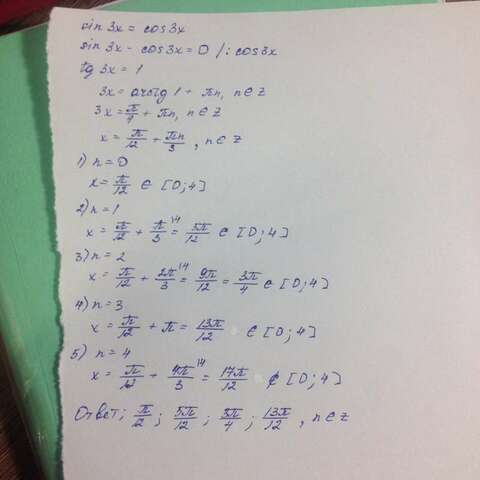 sin 3x = cos3x
sin 3x - cos3x = 0 /: cos3x
tg 3x = 1
3x = arctg 1 + πn, n∈z
3x = π/4 + πn, n∈z
x = π/12 + πn/3, n∈z
1) n=0
x = π/12 ∈ [0;4]
2) n=1
x = π/12 + π/3 \4 = 5π/12 ∈ [0;4]
3) n=2
x = π/12 + 2π/3 \4 = 9π/12 = 3π/4 ∈ [0;4]
4) n=3
x = π/12 + π = 13π/12 ∈ [0;4]
5) n=4
x = π/12 + 4π/3 \4 = 17π/12 ∉ [0;4]
Ответ; π/12; 5π/12; 3π/4; 13π/12, n∈z